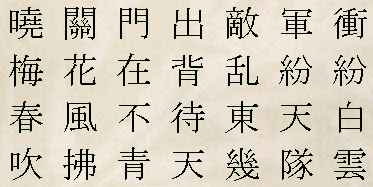 曉關門出敵軍衝
梅花在背乱紛紛
春風不待東天白
吹拂青天幾隊雲